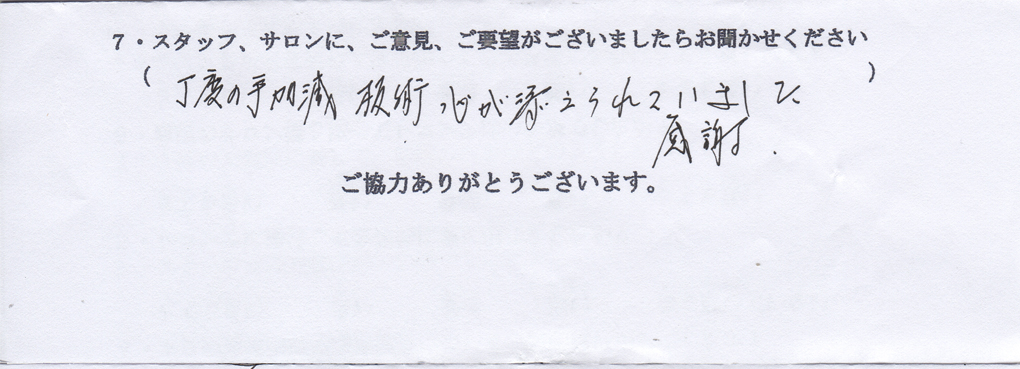 7・スタッフ、サロンに、ご意見、ご要望がございましたらお聞かせください
( 丁度の手加減 技術 心が添えられていまして、 )
感謝.
ご協力ありがとうございます。